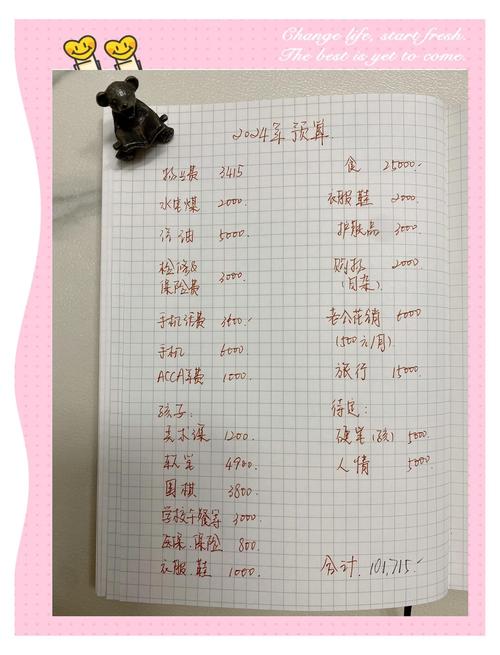 Change life, start fresh.
The best is yet to come.
2024年预算
物业费 3415
水电煤 2000
汽油 5000
检修&
保险费 3000
手机话费 3600
手机 6000
ACCA年费 1000
孩子:
美术课 1200
软笔 4900
围棋 3800
学校午餐等 3000
医保.保险 800
衣服.鞋 1000
食 25000
衣服鞋 2000
护肤品 3000
购物 2000
(日杂)
老公花销 6000
(500元/月)
旅行 15000
待定:
硬笔(孩) 5000
人情 5000
合计. 101,715